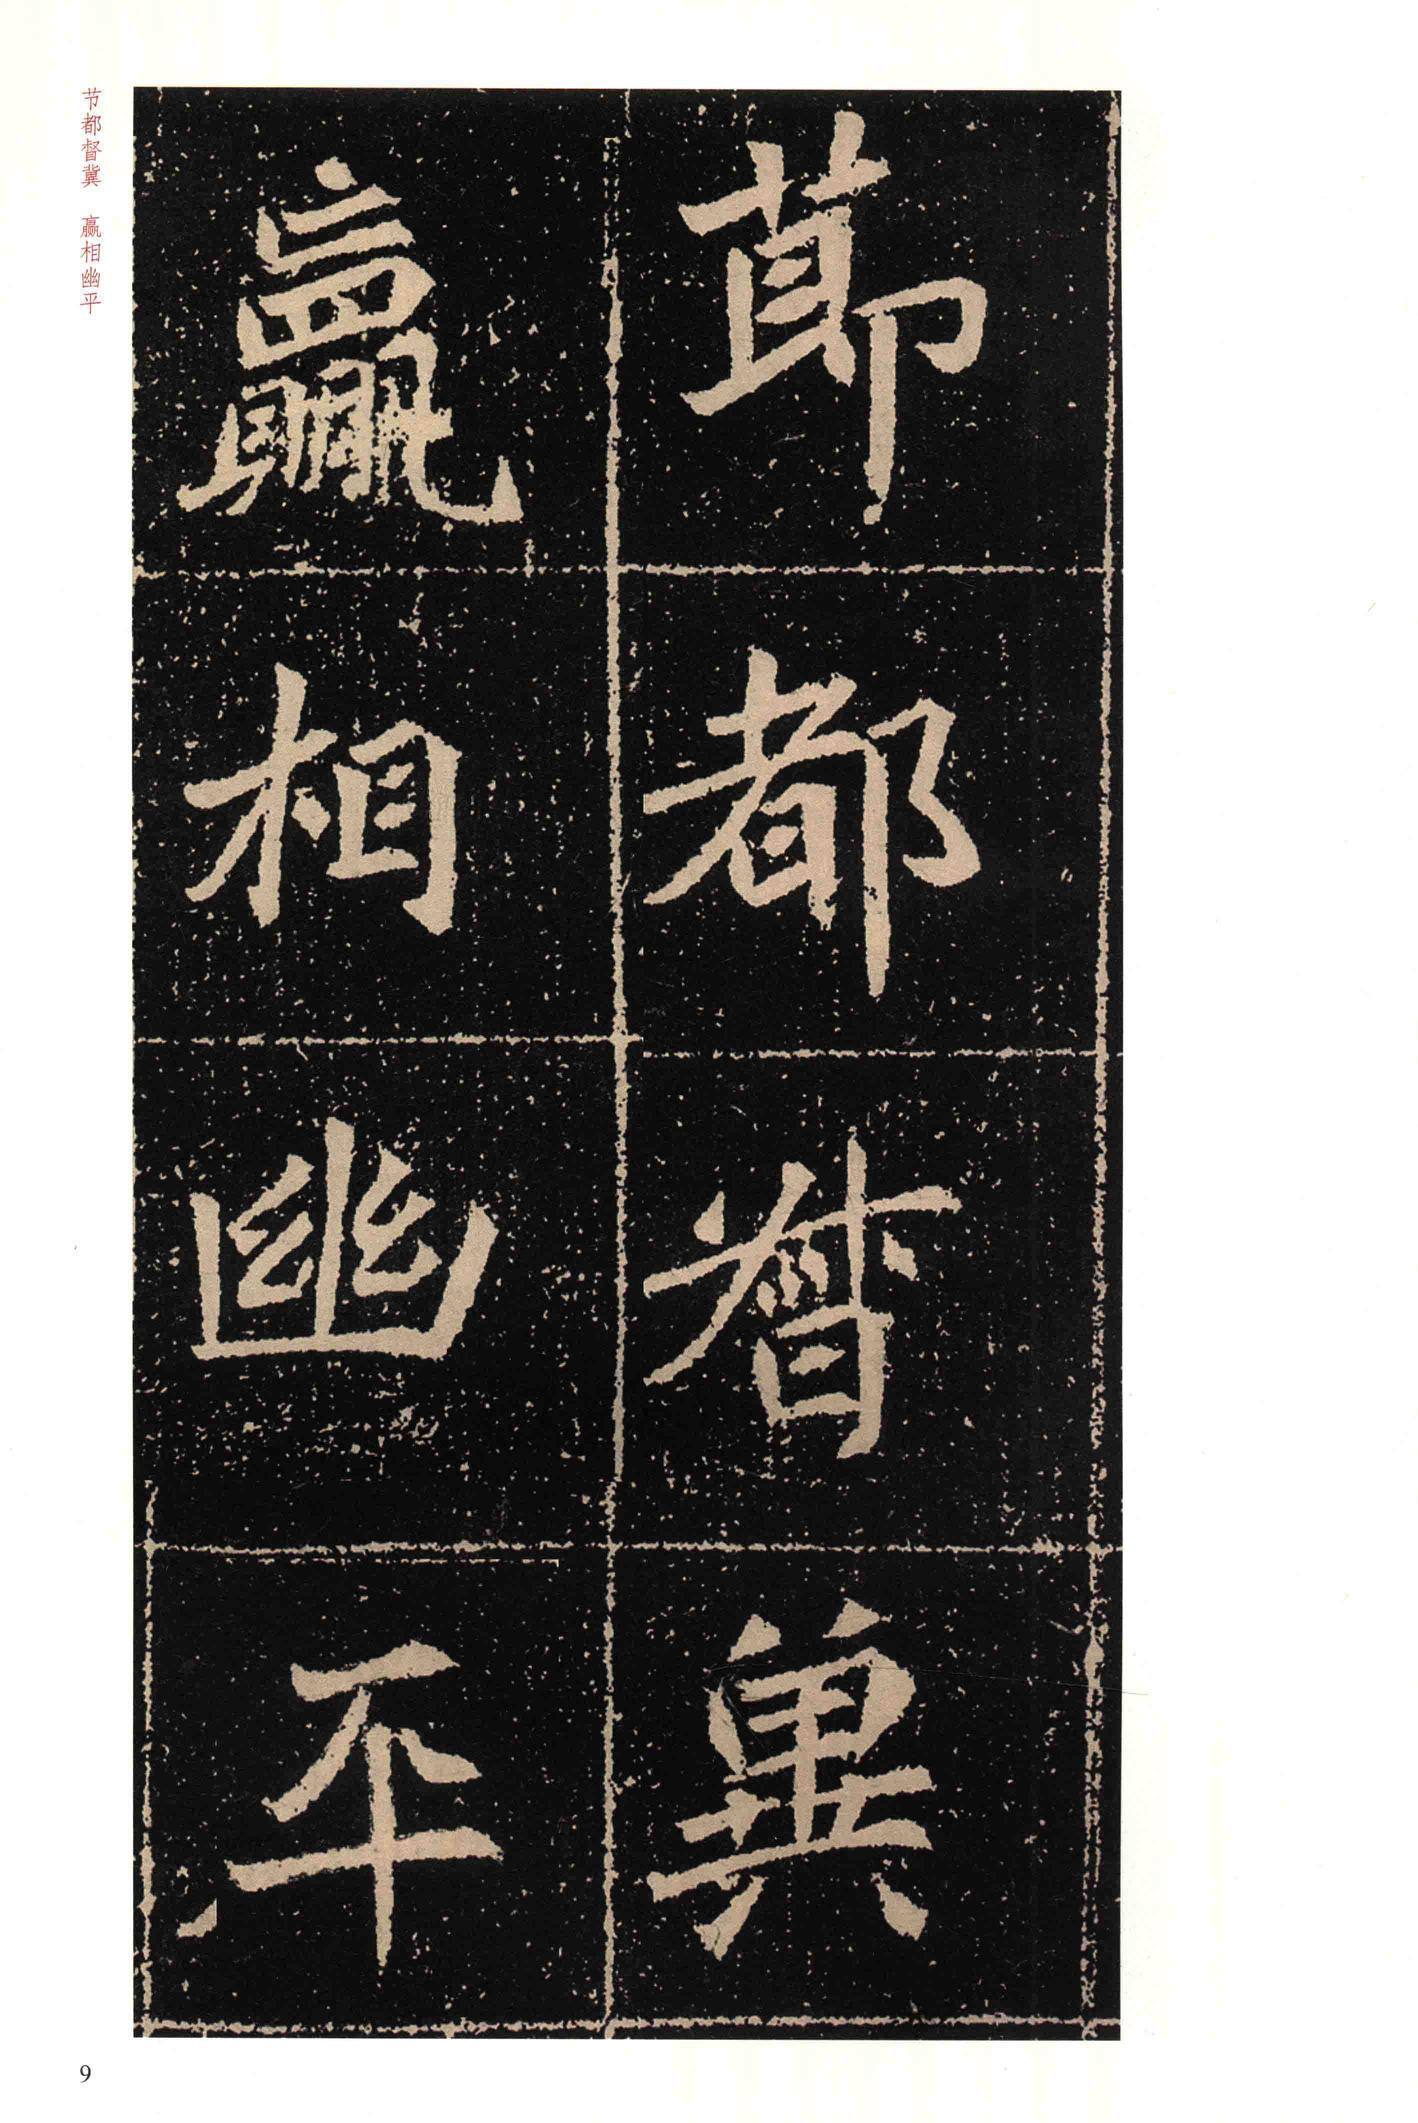 节都督冀　嬴相幽平
莭都督冀
嬴相幽平
9